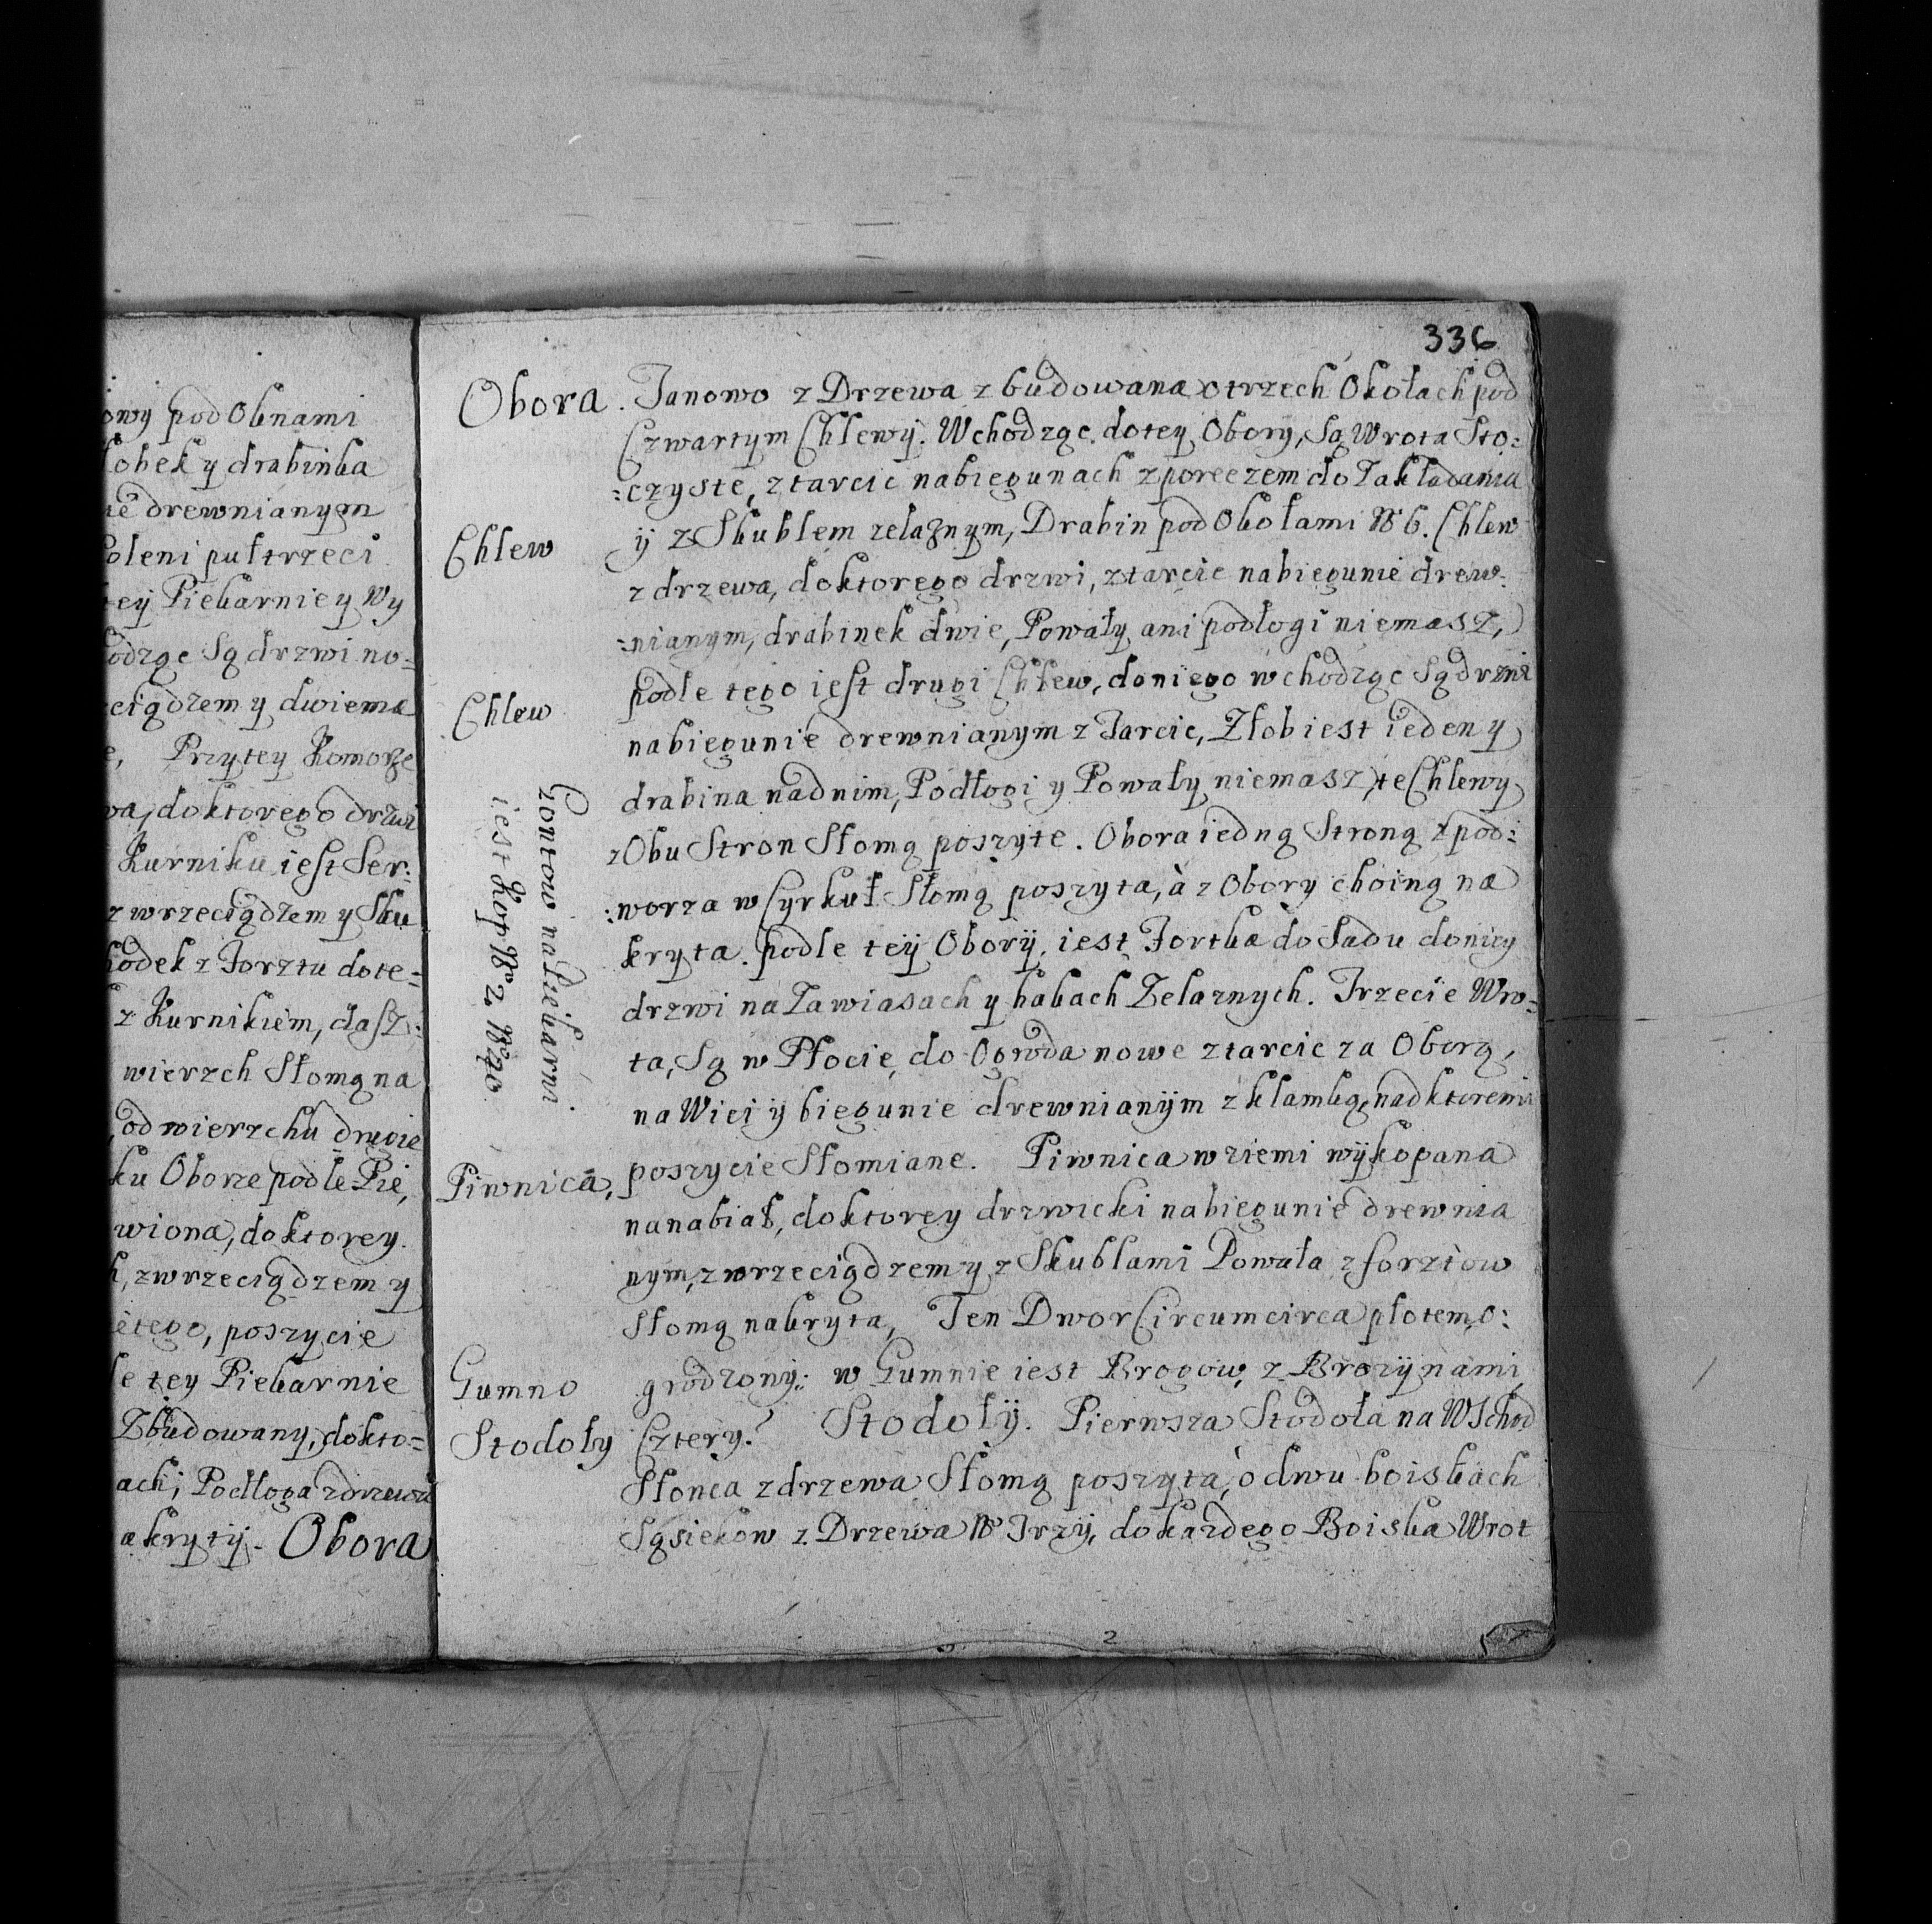 owy pod Oknami
łobek y drabinka
ie drewnianym
oleni pułtrzeci
teÿ Piekarnie y Wy
odząc Są drzwi no=
eciądzem y dwiema
e, Przytey Komorze
wa, doktorego drzwi
Kurniku iest Ser:
z wrzeciądzem y Sku
hodek z Forztu dote=
z Kurnikiem, dasz:
wierzch Słomą na
od wierzchu drugie
ku Oborze podle Pie,
wiona, doktorey
h, zwrzeciądzem y
ietego, poszycie
le tey Piekarnie
Zbudowany, dokto=
ach; Podłoga zdrzewa
akrytÿ. Obora
336
Obora. Janowo z Drzewa zbudowana otrzech Okołach pod
Czwartym Chlewÿ. Wchodząc dotey Obory, Są Wrota Sto:
:czyste, ztarcic nabiegunach zporęczem do Zakładania
Chlew
ÿ z Skublem zelaznym, Drabin pod Okołami N 6. Chlew
z drzewa, doktorego drzwi, ztarcic nabiegunie drew:
:nianym, drabinek dwie, Powały ani podłogi niemasz,
Chlew
podle tego iest drugi Chlew, doniego wchodząc Są drzwi
nabiegunie drewnianym z Tarcic, Złob iest ieden y
drabina nadnim, Podłogi y Powały niemasz, te Chlewy
z Obu Stron Słomą poszyte. Obora iedną Stroną zpod:
:worza w Cyrkuł Słomą poszyta, à z Obory choiną na
kryta. podle teÿ Oborÿ. iest Fortka do Sadu doniey
drzwi na Zawiasach y hakach Zelaznych. Trzecie Wro=
ta, Są w Płocie, do Ogroda nowe ztarcic za Oborą,
na Wici ÿ biegunie drewnianÿm z klamką, nad ktoremi
Gontow na Piekarni
iest kop N 2. N 20
Piwnica, poszycie Słomiane. Piwnica wziemi wÿkopana
nanabiał, doktorey drzwicki nabiegunie drewnia
nym, zwrzeciądzem y z Skublami Powała z forztow
Słomą nakryta, Ten Dwor Circumcirca płotem o:
Gumno grodzony: w Gumnie iest Brogow, z Brozÿnami
Stodoły Cztery. Stodołÿ. Pierwsza Stodoła na WSchod
Słonca zdrzewa Słomą poszyta, o dwu boiskach
Sąsiekow z Drzewa N Trzÿ, dokazdego Boiska Wrot
2